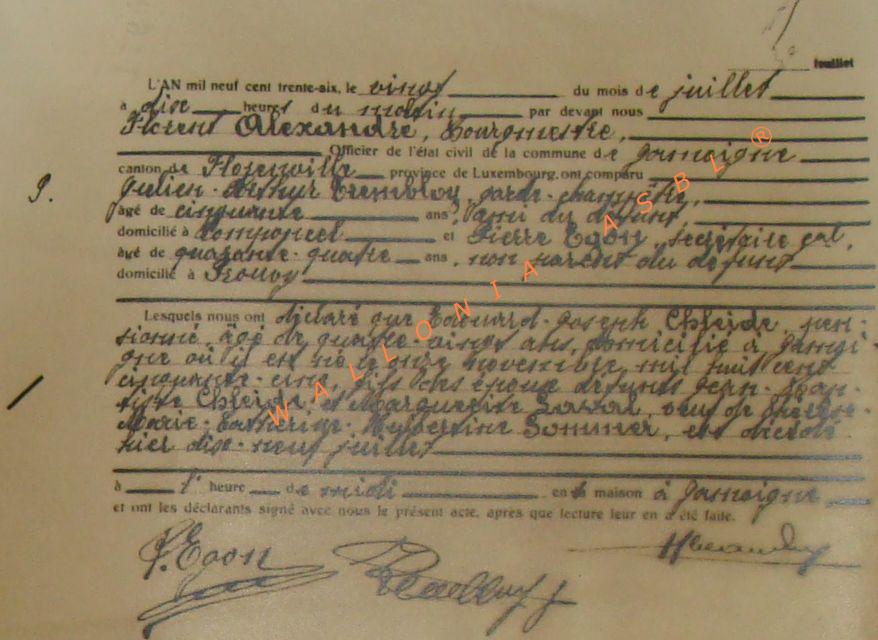 feuillet
L'AN mil neuf cent trente-six, le vingt du mois de juillet
à dix heures du matin par devant nous
Florent Alexandre, Bourgmestre,
Officier de l'état civil de la commune de Jamoigne
canton de Florenville province de Luxembourg, ont comparu
9. Julien-Arthur Trembloy, garde-champêtre,
âgé de cinquante ans, ami du défunt,
domicilié à et Pierre Egon, secrétaire cal,
âgé de quarante-quatre ans, non parent du défunt
domicilié à
Lesquels nous ont déclaré que Edouard-Joseph Chleide, pen-
sionné, âgé de quatre-vingt ans, domicilié à Jamoi-
gne où il est né le onze novembre mil huit cent
cinquante-cinq, fils des époux défunts Jean-Bap-
tiste Chleide et Marguerite veuf de
Marie-Catherine-Hubertine Sommer, est décédé
hier dix-neuf juillet
à 1' heure de midi en sa maison à Jamoigne
et ont les déclarants signé avec nous le présent acte, après que lecture leur en a été faite.
P. Egon
WALLONIA ASBL ®